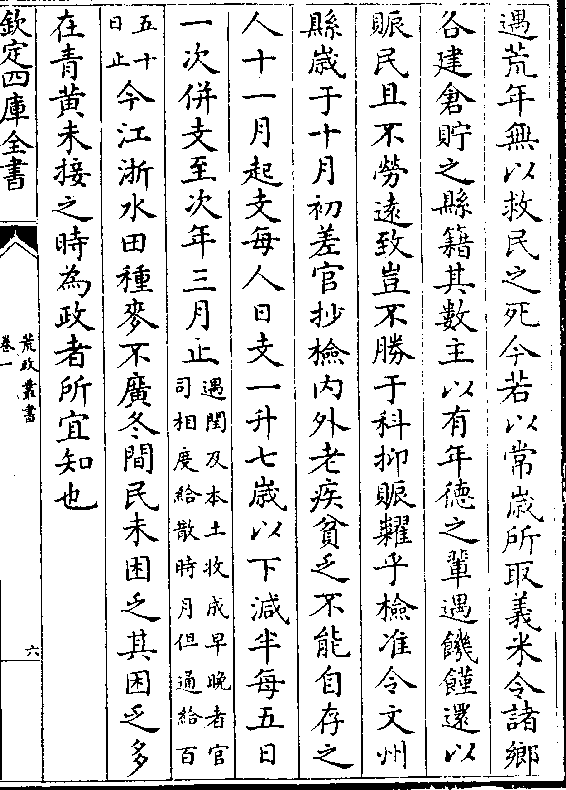 遇荒年無以救民之死今若以常歳所取義米令諸鄉
各建倉貯之縣籍其數主以有年德之輩遇饑饉還以
賑民且不勞遠致豈不勝于科抑賑糶乎檢准令文州
縣歳于十月初差官抄檢内外老疾貧乏不能自存之
人十一月起支每人日支一升七歳以下減半每五日
一次併支至次年三月止遇閏及本土收成早晚者官
司相度給散時月但通給百
五十
日止今江浙水田種麥不廣冬間民未困乏其困乏多
在青黄未接之時為政者所宜知也
欽定四庫全書
荒政叢書
卷一
六